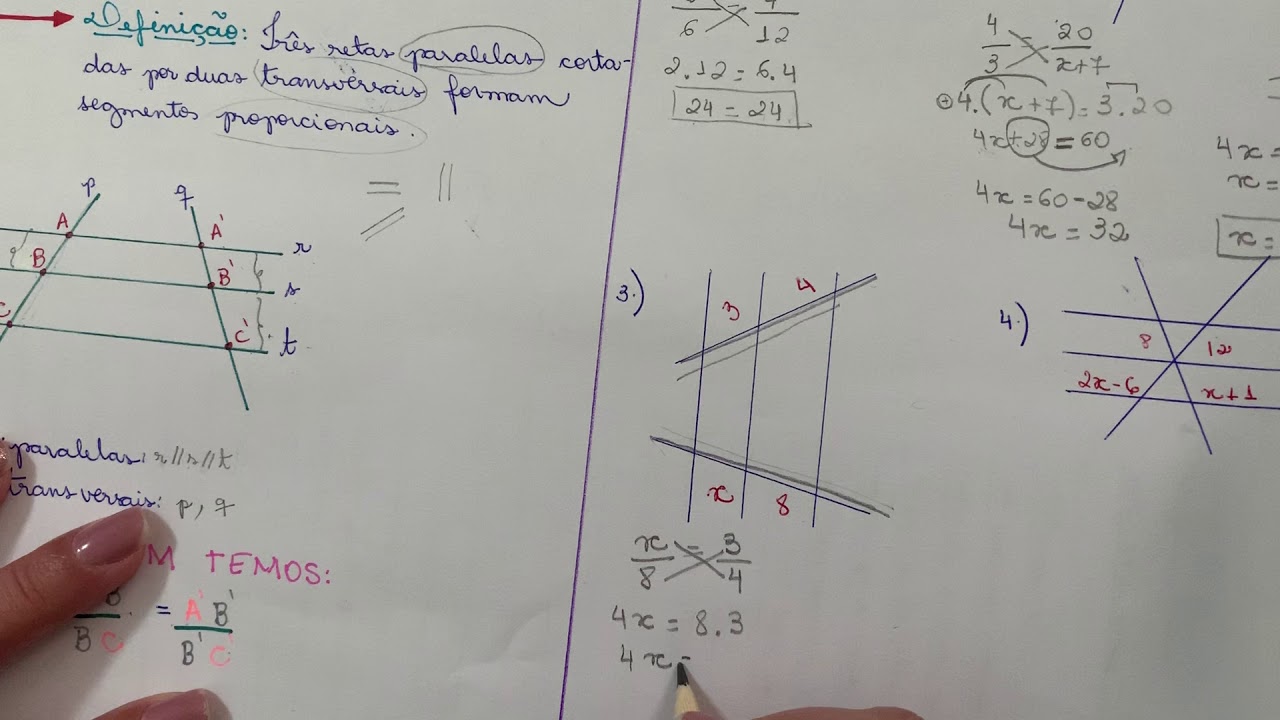 Definição: Três retas paralelas corta-
das por duas transversais formam
segmentos proporcionais.
= ||
//
p q
A A' r
B B' s
C C' t
paralelas: r//s//t
transversais: p, q
M TEMOS:
B = A'B'
BC B'C
6 12
2.12 = 6.4
24 = 24
4 = 20
3 x+7
4.(x+7) = 3.20
4x+28 = 60
4x = 60-28
4x = 32
4x =
x =
x =
3.)
3 4
x 8
x = 3
8 4
4x = 8.3
4x =
4.)
8 12
2x-6 x+1